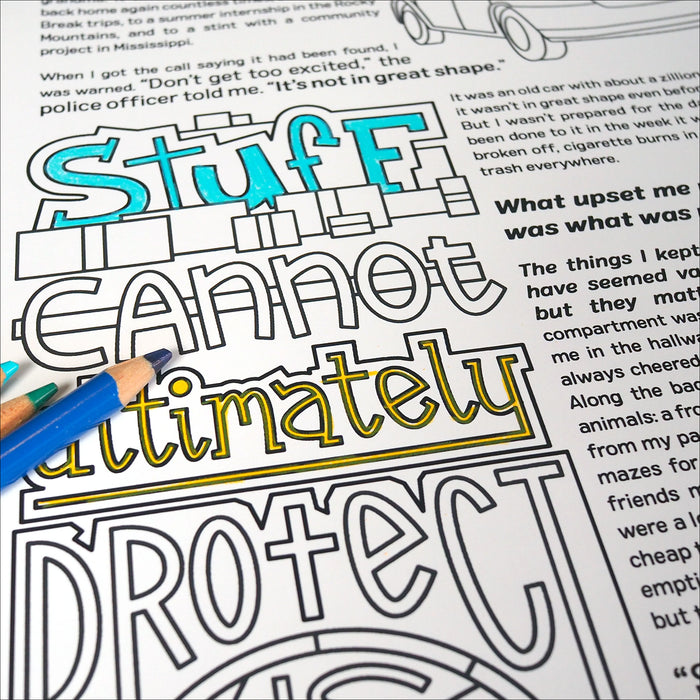 back home again countless
Break trips, to a summer internship in the Rocky
Mountains, and to a stint with a community
project in Mississippi.
When I got the call saying it had been found, I
was warned. "Don't get too excited," the
police officer told me. "It's not in great shape."
Stuff
cannot
ultimately
PROTECT
US
It was an old car with about a
it wasn't in great shape even
But I wasn't prepared for the
been done to it in the week it
broken off, cigarette burns in
trash everywhere.
What upset me
was what was
The things I kept
have seemed
but they
compartment
me in the
always cheered
Along the
animals: a
from my
mazes for
friends
were a
cheap
but